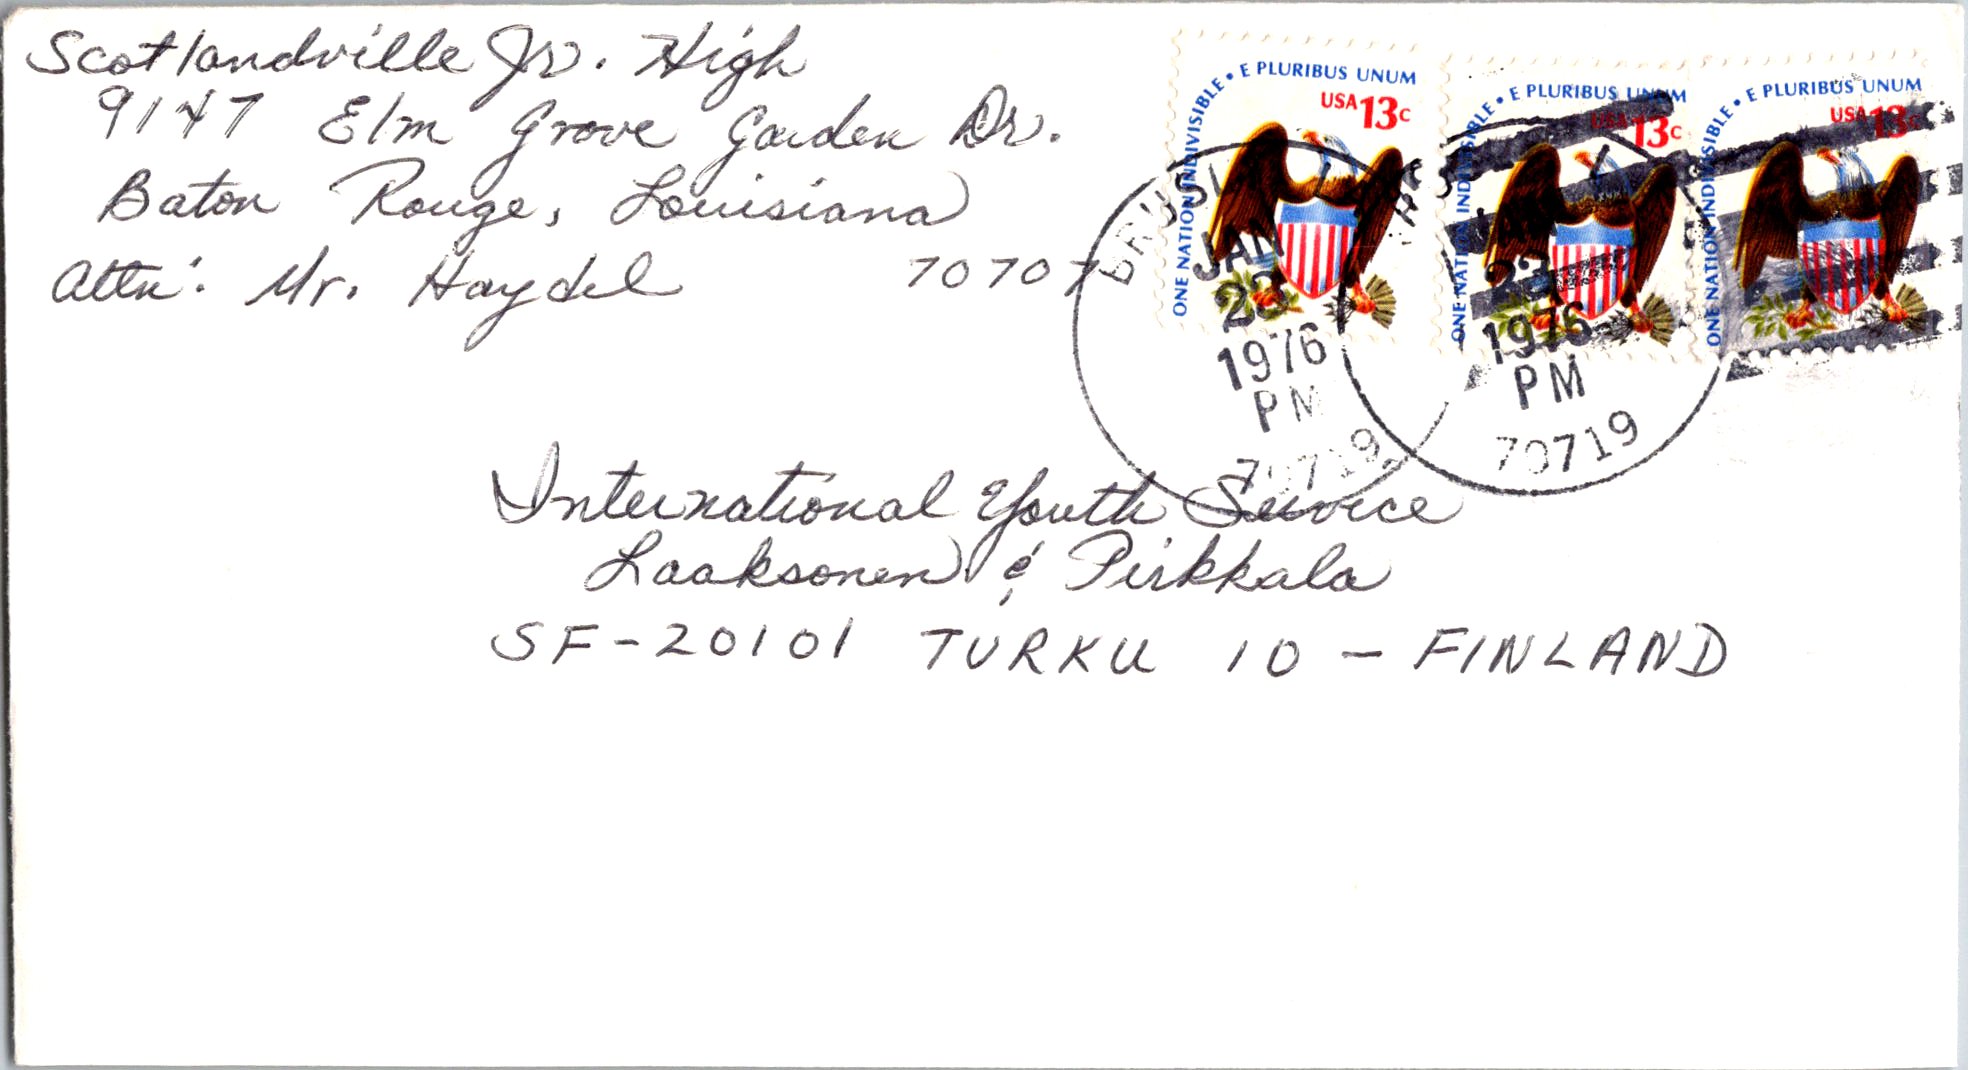 Scotlandville Jr. High
9147 Elm Grove Garden Dr.
Baton Rouge, Louisiana
Attn: Mr. Haydel 70707
ONE NATION INDIVISIBLE • E PLURIBUS UNUM
USA 13c
ONE NATION INDIVISIBLE • E PLURIBUS UNUM
USA 13c
ONE NATION INDIVISIBLE • E PLURIBUS UNUM
USA 13c
JAN
23
1976
PM
70719
1976
PM
70719
International Youth Service
Laaksonen & Pirkkala
SF-20101 TURKU 10 - FINLAND